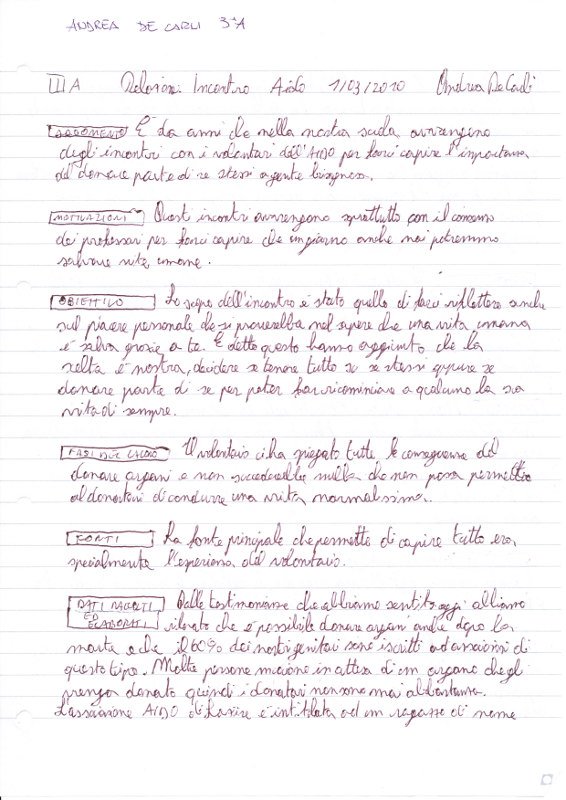 ANDREA DE CARLI 3°A
III A Relazione Incontro Aido 1/03/2010 Andrea De Carli
ARGOMENTO E da anni che nella nostra scuola avvengono
degli incontri con i volontari dell'AIDO per farci capire l'importanza
del donare parte di se stessi a gente bisognosa.
MOTIVAZIONI Questi incontri avvengono soprattutto con il consenso
dei professori per farci capire che un giorno anche noi potremmo
salvare vite umane.
OBIETTIVO Lo scopo dell'incontro è stato quello di farci riflettere anche
sul piacere personale che si proverebbe nel sapere che una vita umana
è salva grazie a te. E detto questo hanno aggiunto che la
scelta è nostra, decidere se tenere tutto se stessi oppure se
donare parte di se per poter far ricominciare a qualcuno la sua
vita di sempre.
FASI DEL LAVORO Il volontario ci ha spiegato tutte le conseguenze del
donare organi e non succederebbe nulla che non possa permettere
al donatori di condurre una vita normalissima.
FONTI La fonte principale che permette di capire tutto era,
specialmente l'esperienza del volontario.
DATI RACCOLTI
ED
ELABORATI Dalle testimonianze che abbiamo sentito oggi abbiamo
rilevato che è possibile donare organi anche dopo la
morte e che il 60% dei nostri genitori sono iscritti ad associazioni di
questo tipo. Molte persone muoiono in attesa di un organo che gli
venga donato quindi i donatori non sono mai abbastanza.
L'associazione AIDO di è intitolata ad un ragazzo di nome